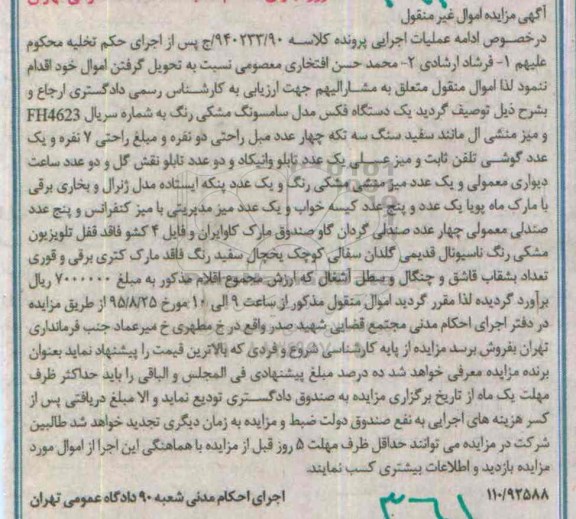 آگهی مزایده اموال غیر منقول
درخصوص ادامه عملیات اجرایی پرونده کلاسه ۹۴۰۲۳۳/۹۰/ج پس از اجرای حکم تخلیه محکوم
علیهم ۱- فرشاد ارشادی ۲- محمد حسن افتخاری معصومی نسبت به تحویل گرفتن اموال خود اقدام
ننمود لذا اموال منقول متعلق به مشارالیهم جهت ارزیابی به کارشناس رسمی دادگستری ارجاع و
بشرح ذیل توصیف گردید یک دستگاه فکس مدل سامسونگ مشکی رنگ به شماره سریال FH4623
و میز منشی ال مانند سفید سنگ سه تکه چهار عدد مبل راحتی دو نفره و مبلغ راحتی ۷ نفره و یک
عدد گوشی تلفن ثابت و میز عسلی یک عدد تابلو وانیکاد و دو عدد تابلو نقش گل و دو عدد ساعت
دیواری معمولی و یک عدد میز منشی مشکی رنگ و یک عدد پنکه ایستاده مدل ژنرال و بخاری برقی
با مارک ماه پویا یک عدد و پنج عدد کیسه خواب و یک عدد میز مدیریتی با میز کنفرانس و پنج عدد
صندلی معمولی چهار عدد صندلی گردان گاو صندوق مارک کاوایران و فایل ۴ کشو فاقد قفل تلویزیون
مشکی رنگ ناسیونال قدیمی گلدان سفالی کوچک یخچال سفید رنگ فاقد مارک کتری برقی و قوری
تعداد بشقاب قاشق و چنگال و سطل آشغال که ارزش مجموع اقلام مذکور به مبلغ ۷۰۰۰۰۰۰ ریال
برآورد گردیده لذا مقرر گردید اموال منقول مذکور از ساعت ۹ الی ۱۰ مورخ ۹۵/۸/۲۵ از طریق مزایده
در دفتر اجرای احکام مدنی مجتمع قضایی شهید صدر واقع در خ مطهری خ میرعماد جنب فرمانداری
تهران بفروش برسد مزایده از پایه کارشناسی شروع و فردی که بالاترین قیمت را پیشنهاد نماید بعنوان
برنده مزایده معرفی خواهد شد ده درصد مبلغ پیشنهادی فی المجلس و الباقی را باید حداکثر ظرف
مهلت یک ماه از تاریخ برگزاری مزایده به صندوق دادگستری تودیع نماید و الا مبلغ دریافتی پس از
کسر هزینه های اجرایی به نفع صندوق دولت ضبط و مزایده به زمان دیگری تجدید خواهد شد طالبین
شرکت در مزایده می توانند حداقل ظرف مهلت ۵ روز قبل از مزایده با هماهنگی این اجرا از اموال مورد
مزایده بازدید و اطلاعات بیشتری کسب نمایند.
۱۱۰/۹۲۵۸۸ اجرای احکام مدنی شعبه ۹۰ دادگاه عمومی تهران